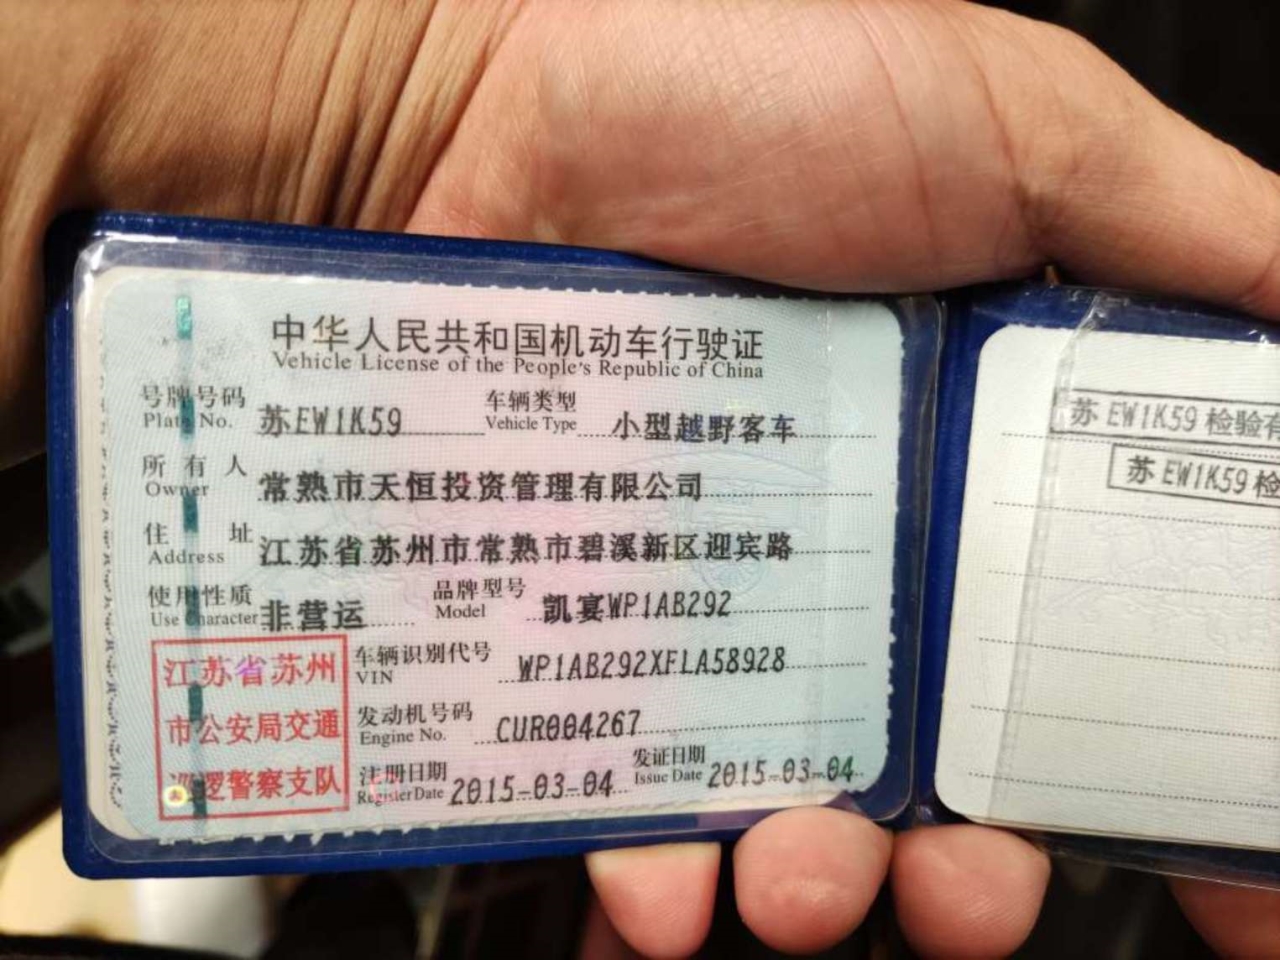 中华人民共和国机动车行驶证
Vehicle License of the People's Republic of China
号牌号码 苏EW1K59 车辆类型 小型越野客车
Plate No. Vehicle Type
所有人 常熟市天恒投资管理有限公司
Owner
住址 江苏省苏州市常熟市碧溪新区迎宾路
Address
使用性质 非营运 品牌型号 凯宴WP1AB292
Use Character Model
江苏省苏州
市公安局交通
巡逻警察支队
车辆识别代号 WP1AB292XFLA58928
VIN
发动机号码 CUR004267
Engine No.
注册日期 2015-03-04 发证日期 2015-03-04
Register Date Issue Date
苏EW1K59 检验有
苏EW1K59 检